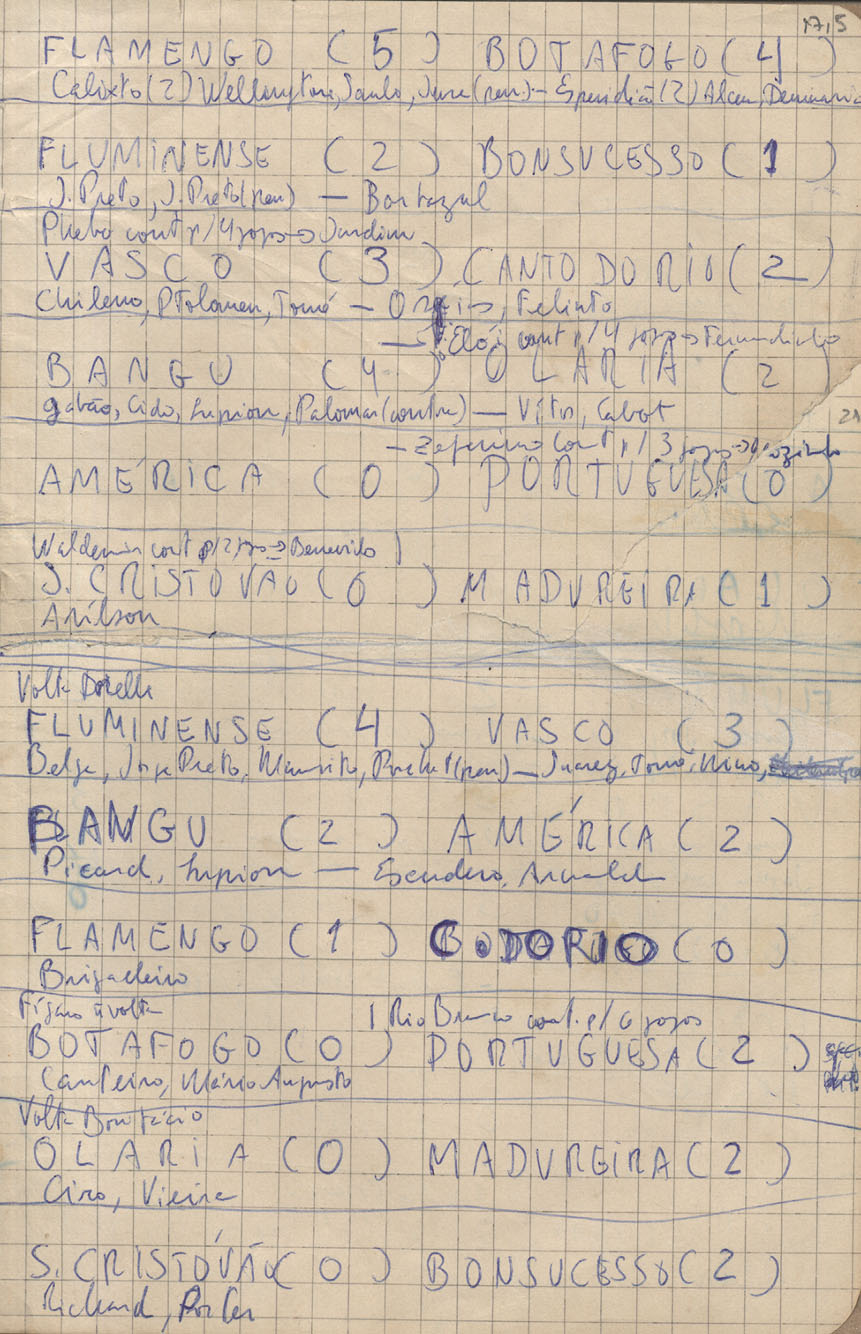 17,5
FLAMENGO (5) BOTAFOGO (4)
Calixto (2) Wellington, Saulo, (pen) - Esperidião (2) Alceu,
FLUMINENSE (2) BONSUCESSO (1)
J. Preto, J. Preto (pen) —
cont p/ 4 jogos → Jardim
VASCO (3) CANTO DO RIO (2)
Chileno, Ptolomeu, Tomé — Felinto
Elói cont p/ 4 jogos →
BANGU (4) OLARIA (2)
Gabão, Cido, Lupion, Palomar (contra) — Vítor, Cabot
21
- Zeferino cont p/ 3 jogos →
AMÉRICA (0) PORTUGUESA (0)
Waldemir cont p/ 2 jogos → Benevido
S. CRISTOVÃO (0) MADUREIRA (1)
Anilson
Volta
FLUMINENSE (4) VASCO (3)
Belga, Jorge Preto, Maurito, (pen) — Juarez, Tomé, Nino,
BANGU (2) AMÉRICA (2)
Picard, Lupion — Escudero,
FLAMENGO (1) C. DO RIO (0)
Brigadeiro
Fígaro volta | Rio Branco cont. p/ 6 jogos
BOTAFOGO (0) PORTUGUESA (2)
Canteiro, Mário Augusto
Volta Bonifácio
OLARIA (0) MADUREIRA (2)
Ciro, Vieira
S. CRISTÓVÃO (0) BONSUCESSO (2)
Richard, Porter